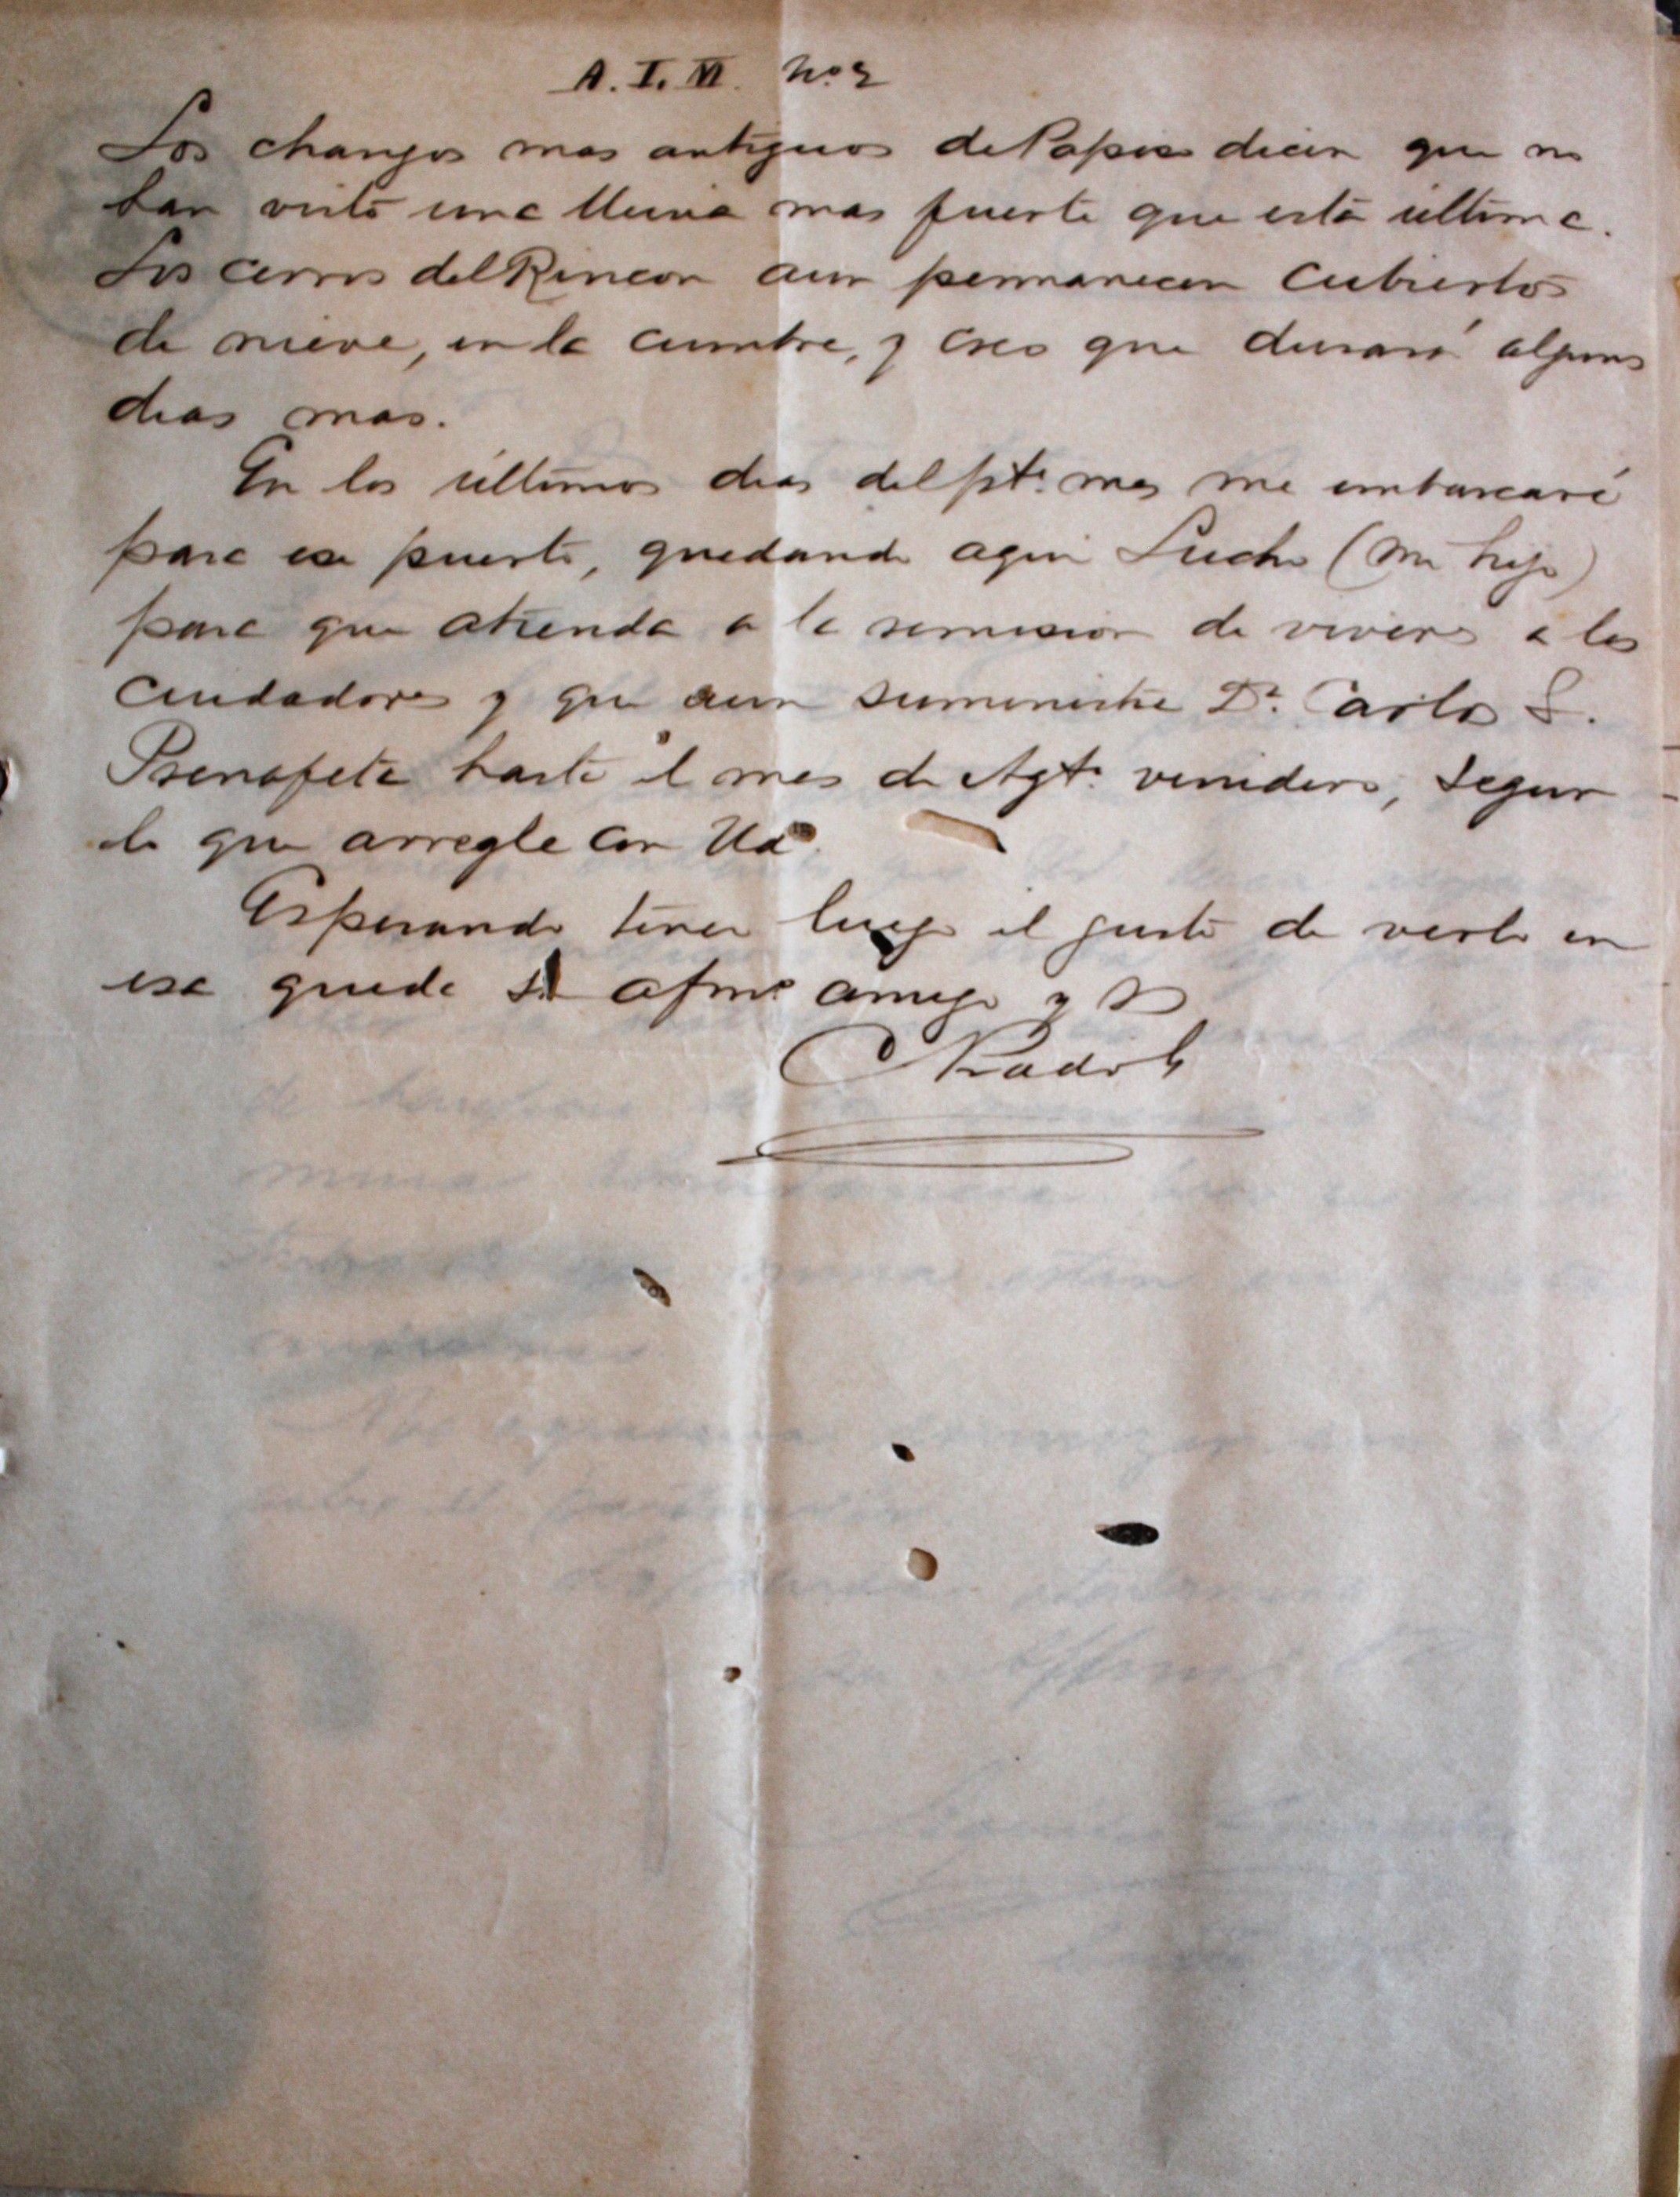 A. I. VI. No. 2
Los changos mas antiguos de Paposo dicen que no
han visto una lluvia mas fuerte que está última.
Los cerros del Rincon aun permanecen cubiertos
de nieve, en la cumbre, y creo que durará algunos
dias mas.
En los últimos dias del pte. mes me embarcaré
para ese puerto, quedando aqui Lucho (mi hijo)
para que atienda a la remision de viveres a los
cuidadores y que aun suministre Dn. Carlos S.
Prenafeta hasta el mes de Agto. venidero, segun
lo que arregle con Ud.
Esperando tener luego el gusto de verlo en
esa quedo su afmo. amigo y SS